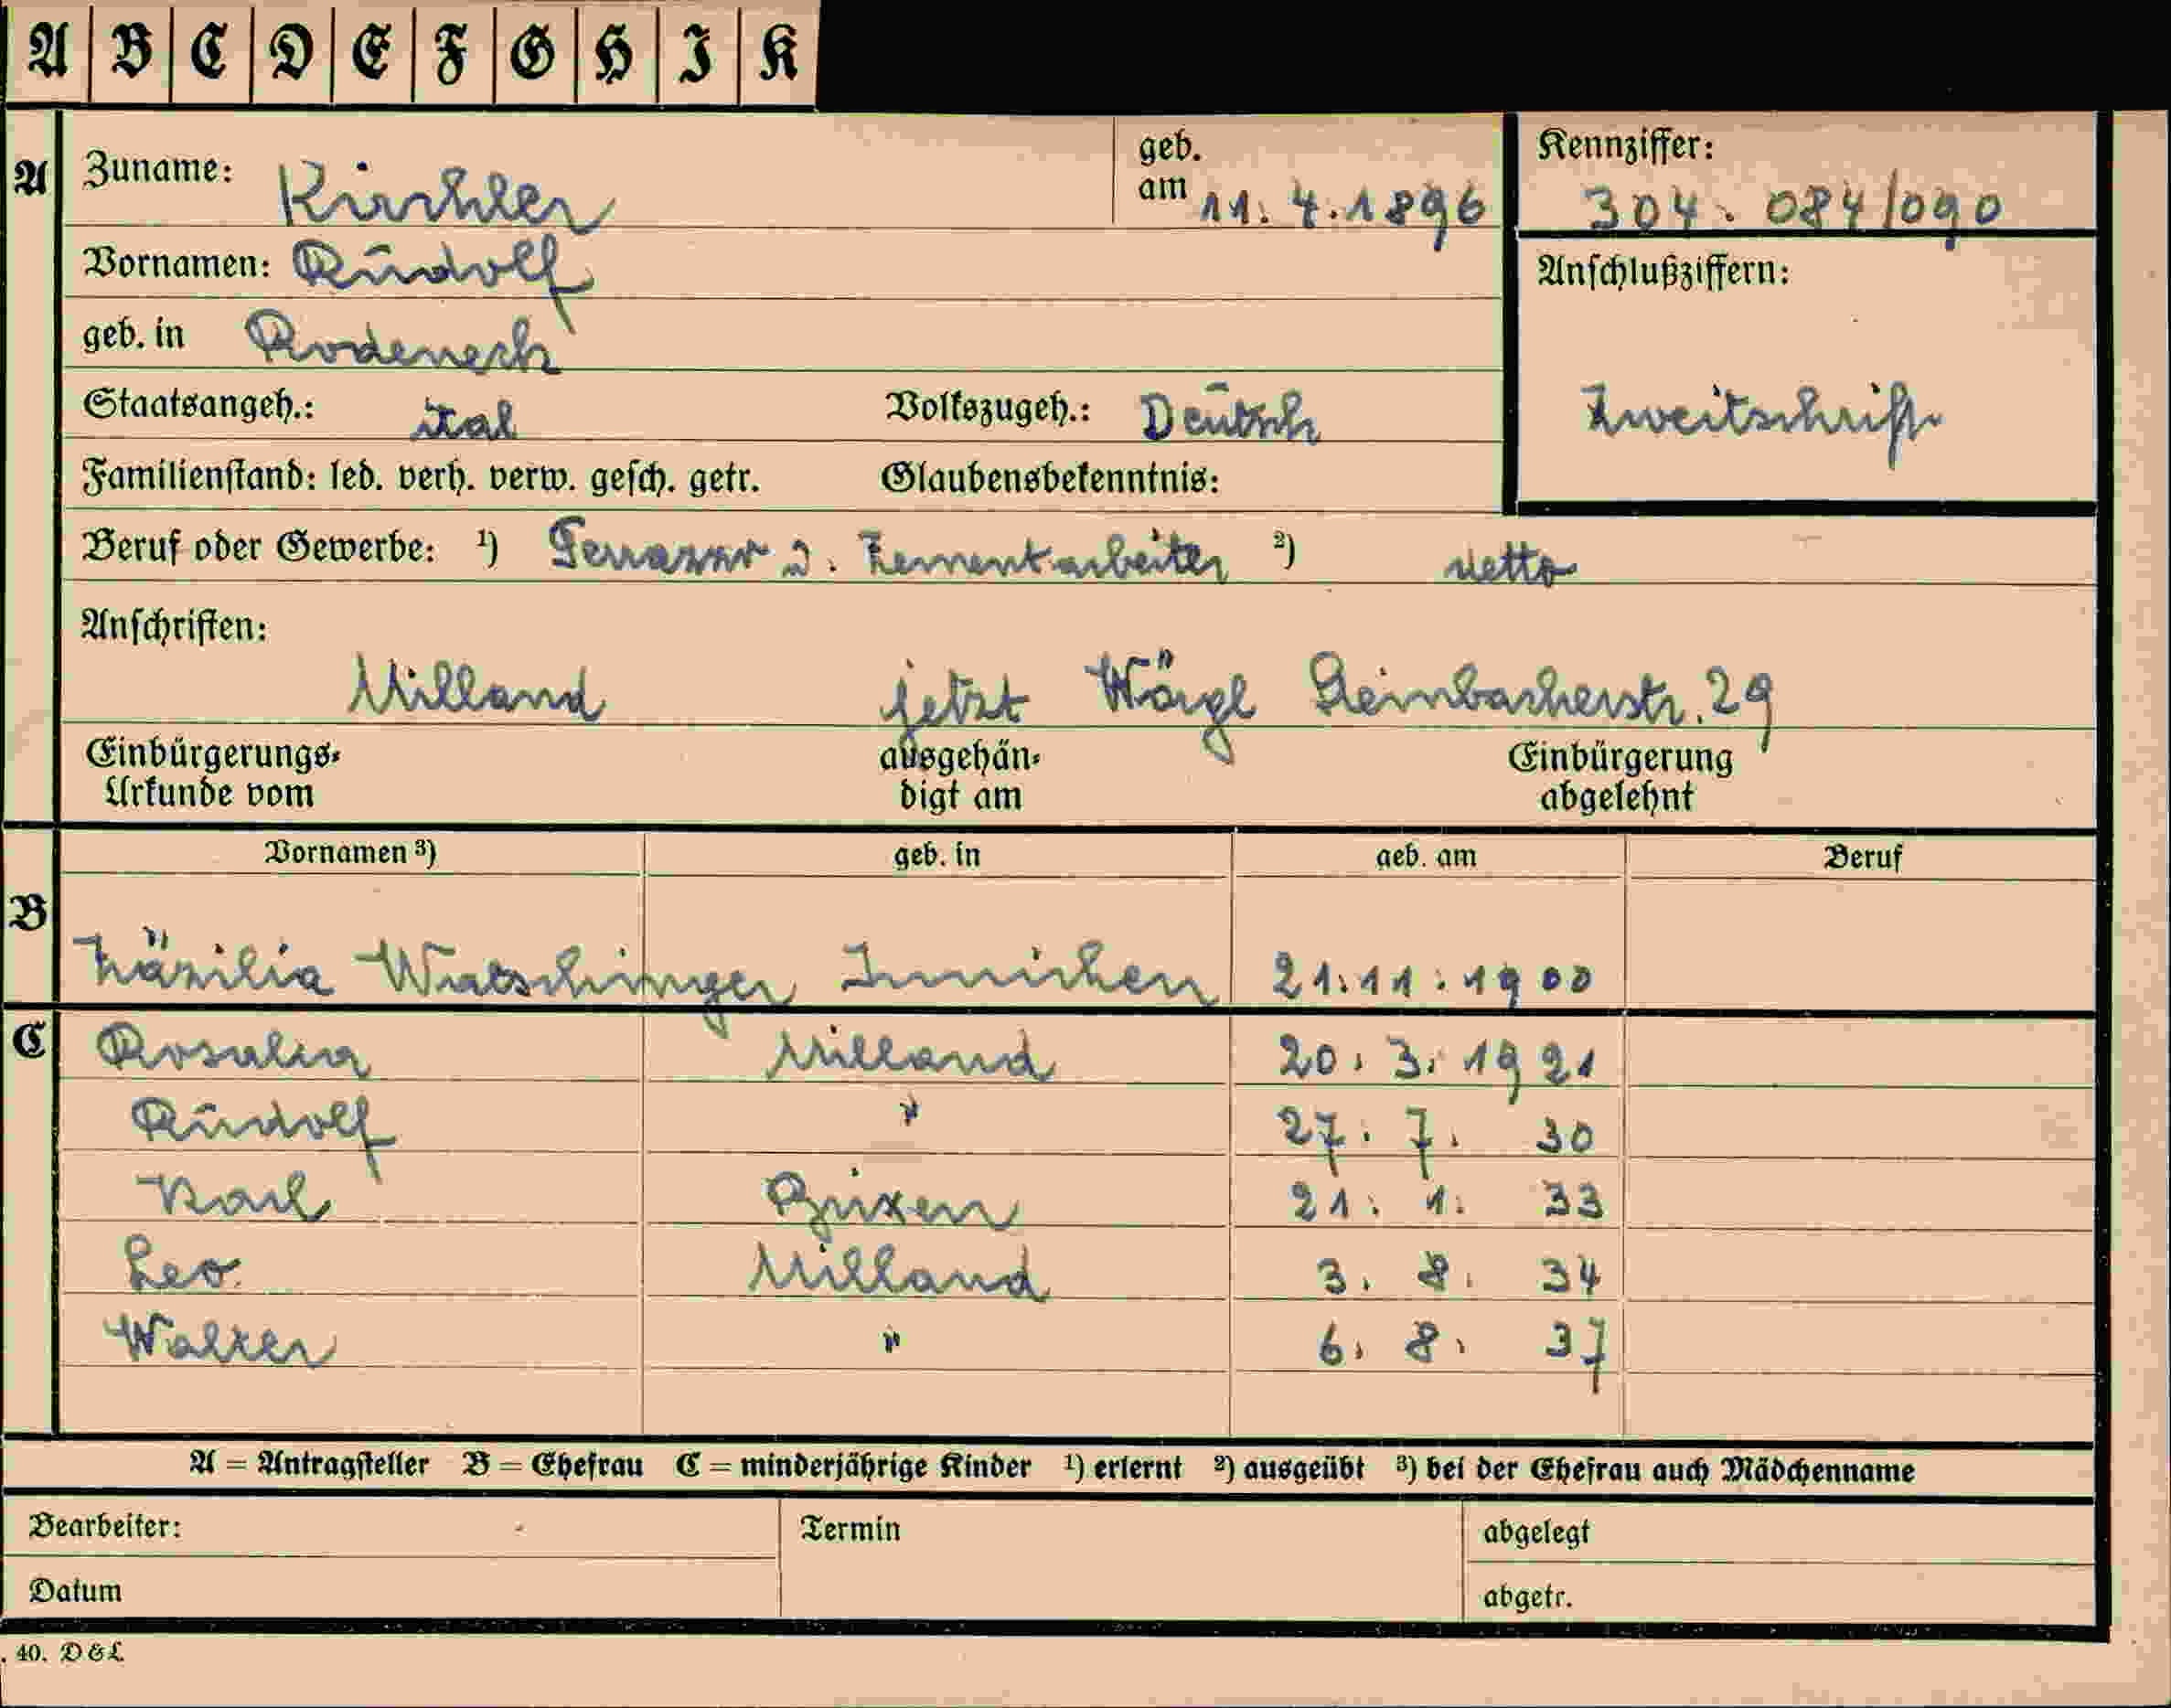 A B C D E F G H I K
A Zuname: Kirchler geb. am 11.4.1896
Kennziffer: 304.084/090
Vornamen: Rudolf
Anschlußziffern:
geb. in Rodeneck
Staatsangeh.: ital Volkszugeh.: Deutsch
Zweitschrift
Familienstand: led. verh. verw. gesch. getr. Glaubensbekenntnis:
Beruf oder Gewerbe: ¹) Terrazzo u. Zementarbeiter ²) detto
Anschriften:
Milland jetzt Wörgl 29
Einbürgerungs- ausgehän- Einbürgerung
Urkunde vom digt am abgelehnt
Vornamen ³) geb. in geb. am Beruf
B
Zäzilia Watschinger Innichen 21.11.1900
C Rosalia Milland 20.3.1921
Rudolf " 27.7. 30
Karl Brixen 21.1. 33
Leo Milland 3.8. 34
Walter " 6.8. 37
A = Antragsteller B = Ehefrau C = minderjährige Kinder ¹) erlernt ²) ausgeübt ³) bei der Ehefrau auch Mädchenname
Bearbeiter: Termin abgelegt
Datum abgetr.
. 40. D & L